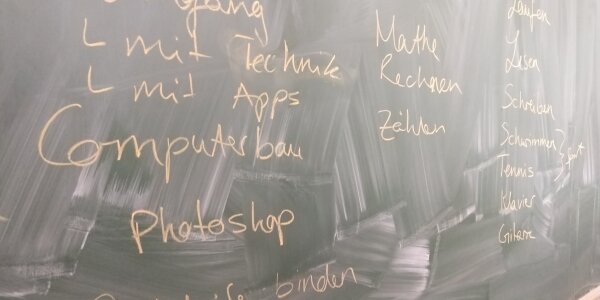 └ mit Technik
└ mit Apps
Computerbau
Photoshop
binden
Mathe
Rechnen
Zählen
Laufen
Lesen
Schreiben
Schwimmen
Tennis
Klavier
Gitarre